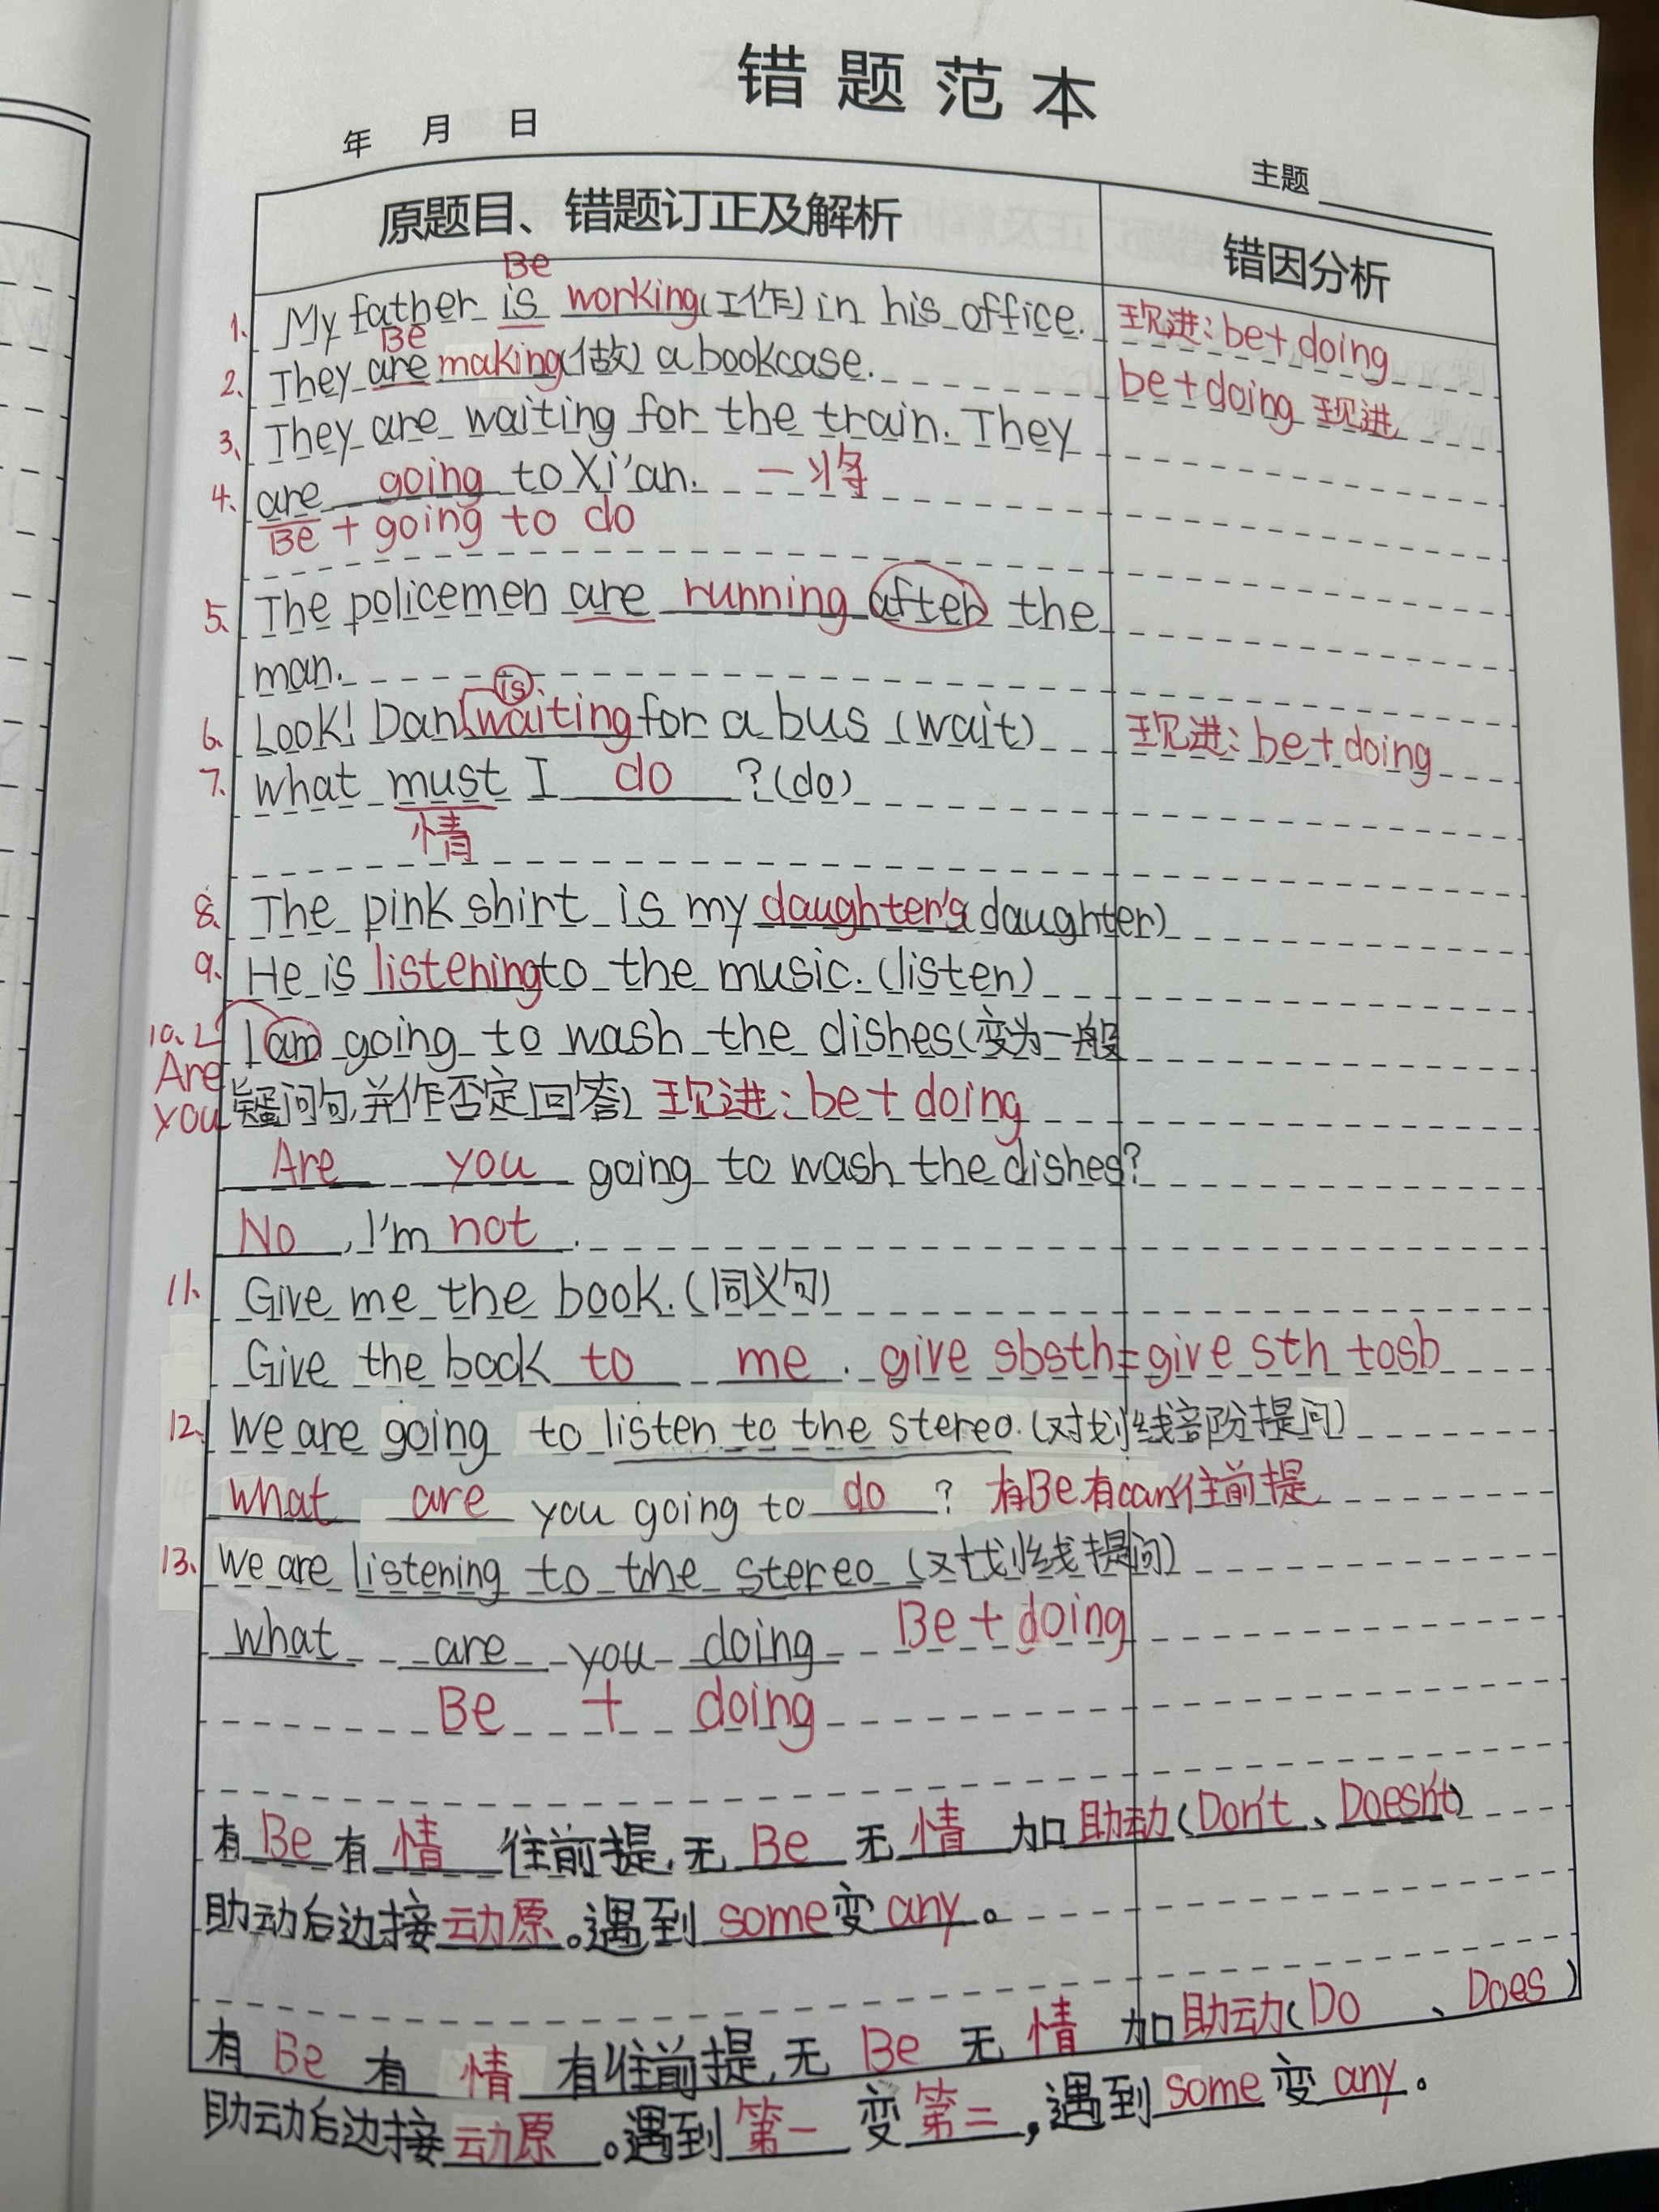 错题范本
年 月 日
主题
原题目、错题订正及解析
错因分析
Be
1. My father is working(工作) in his office. 现进:be+doing
Be
2. They are making(做) a bookcase. be+doing 现进
3、They are waiting for the train. They
4. are going to Xi'an. 一将
Be + going to do
5. The policemen are running after the
man.
is
6. Look! Dan waiting for a bus (wait) 现进:be+doing
7. what must I do ?(do)
情
8. The pink shirt is my daughter's daughter)
9. He is listening to the music. (listen)
10. I am going to wash the dishes(变为一般
Are
疑问句,并作否定回答) 现进:be+doing
you
Are you going to wash the dishes?
No , I'm not .
11、Give me the book. (同义句)
Give the book to me . give sbsth=give sth tosb
12、We are going to listen to the stereo. (对划线部分提问)
what are you going to do ? 有Be有can往前提
13、We are listening to the stereo (对划线提问)
what are you doing Be+doing
Be + doing
有 Be 有 情 往前提,无 Be 无 情 加 助动(Don't、Doesn't)
助动后边接 动原。遇到 some变 any。
有 Be 有 情 有往前提,无 Be 无 情 加助动(Do 、Does)
助动后边接 动原 。遇到 第一 变 第二,遇到 some 变 any。